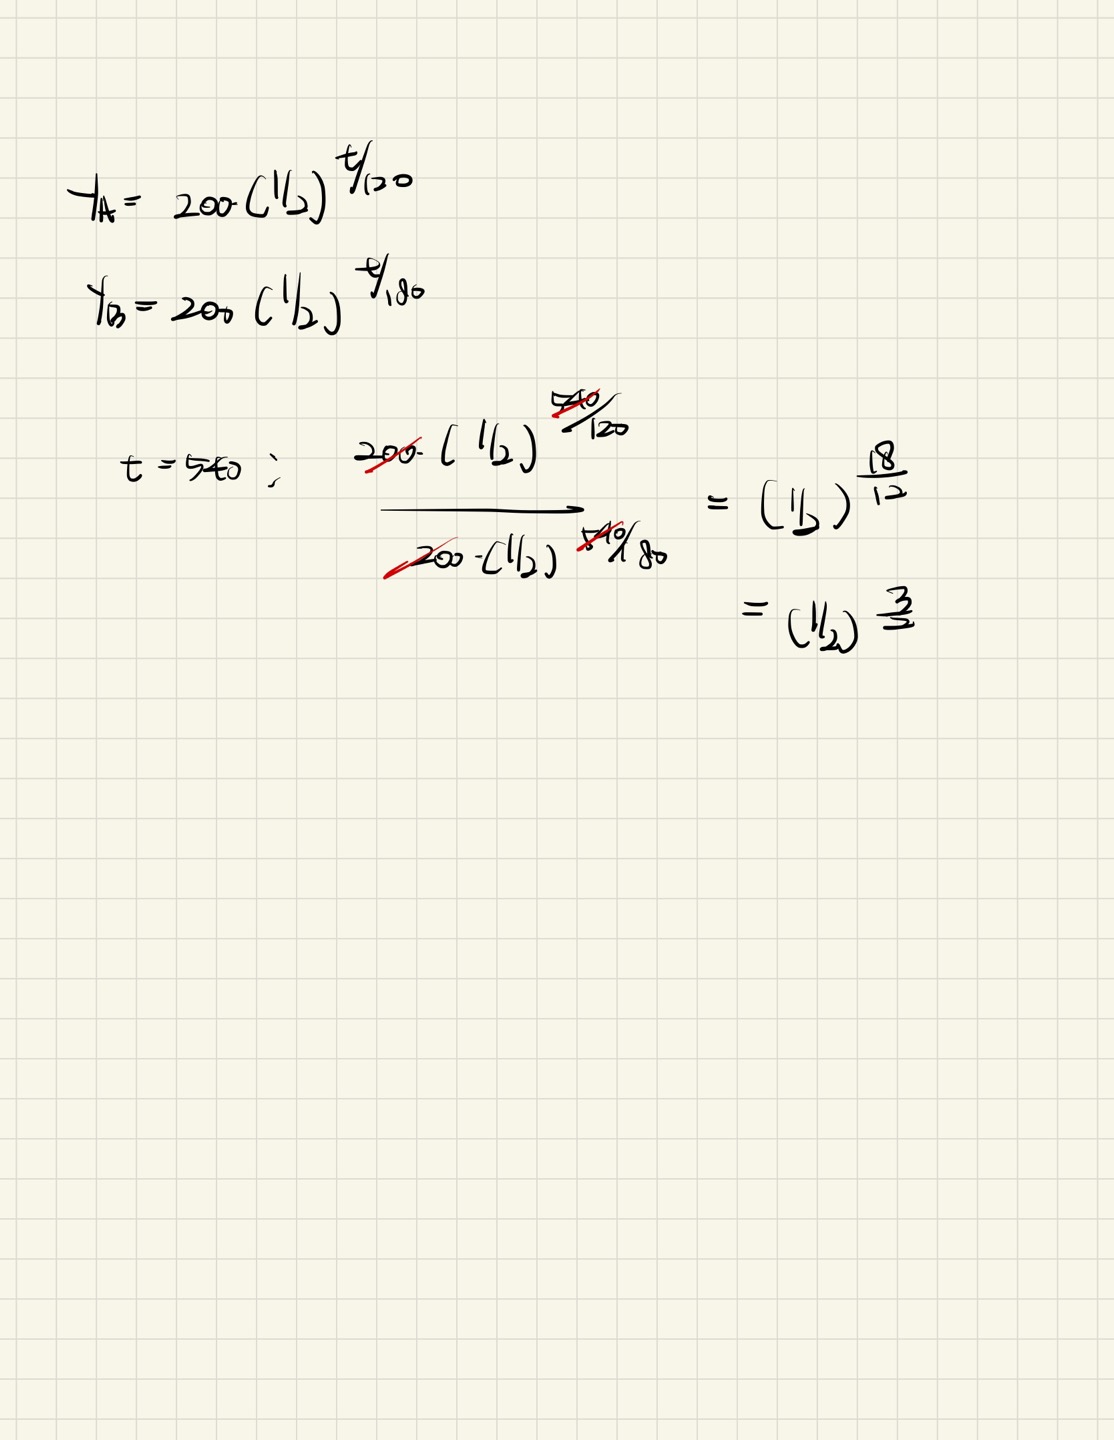 Y_A = 200·(1/2)^{t/120}
Y_B = 200 (1/2)^{t/180}
t = 540 ; \frac{200·(1/2)^{540/120}}{200·(1/2)^{540/180}} = (1/2)^{\frac{18}{12}}
= (1/2)^{\frac{3}{2}}